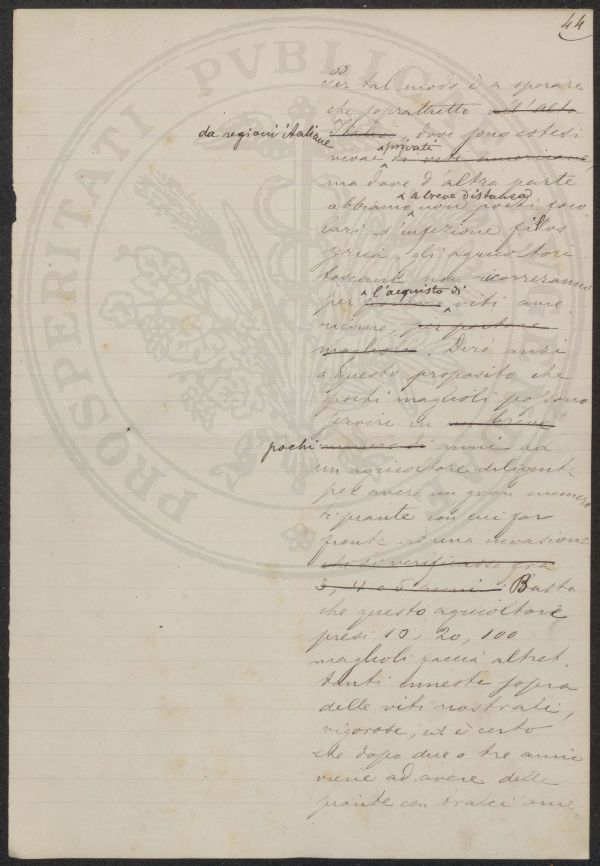 44
Per tal modo è a sperare
che soprattutto dall'alta
da regioni italiane
Italia, dove sono estesi
privati
vivai di viti americane,
ma dove d'altra parte
a breve distanza
abbiamo non pochi foco
lari d'infezione fillos
serica, gli agricoltori
toscani non ricorreranno
l'acquisto di
per viti ame
ricane, per portare
maglioli. Dirò anzi
a questo proposito che
pochi maglioli possono
servire in un breve
pochi numero di anni ad
un agricoltore diligente
per avere un gran numero
di piante con cui far
fronte ad una invasione
che si verificasse fra
3, 4 o 5 anni. Basta
che questo agricoltore
presi 10, 20, 100
maglioli faccia altret
tanti innesti sopra
delle viti nostrali,
vigorose, ed è certo
che dopo due o tre anni
viene ad avere delle
piante con tralci ame
PROSPERITATI PVBLICAE